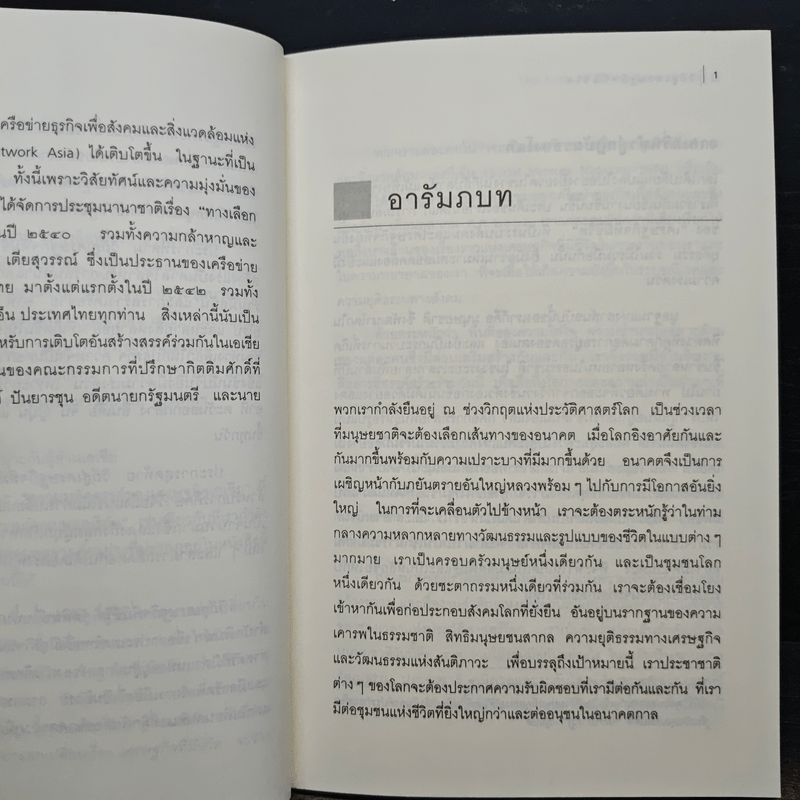 ครือข่ายธุรกิจเพื่อสังคมและสิ่งแวดล้อมแห่ง
twork Asia) ได้เติบโตขึ้น ในฐานะที่เป็น
ทั้งนี้เพราะวิสัยทัศน์และความมุ่งมั่นของ
ได้จัดการประชุมนานาชาติเรื่อง "ทางเลือก
นปี ๒๕๔๐ รวมทั้งความกล้าหาญและ
เตียสุวรรณ์ ซึ่งเป็นประธานของเครือข่าย
ทย มาตั้งแต่แรกตั้งในปี ๒๕๔๒ รวมทั้ง
อ็น ประเทศไทยทุกท่าน สิ่งเหล่านี้นับเป็น
หรับการเติบโตอันสร้างสรรค์ร่วมกันในเอเชีย
นของคณะกรรมการที่ปรึกษากิตติมศักดิ์ที่
ปันยารชุน อดีตนายกรัฐมนตรี และนาย
1
อารัมภบท
พวกเรากำลังยืนอยู่ ณ ช่วงวิกฤตแห่งประวัติศาสตร์โลก เป็นช่วงเวลา
ที่มนุษยชาติจะต้องเลือกเส้นทางของอนาคต เมื่อโลกอิงอาศัยกันและ
กันมากขึ้นพร้อมกับความเปราะบางที่มีมากขึ้นด้วย อนาคตจึงเป็นการ
เผชิญหน้ากับภยันตรายอันใหญ่หลวงพร้อม ๆ ไปกับการมีโอกาสอันยิ่ง
ใหญ่ ในการที่จะเคลื่อนตัวไปข้างหน้า เราจะต้องตระหนักรู้ว่าในท่าม
กลางความหลากหลายทางวัฒนธรรมและรูปแบบของชีวิตในแบบต่าง ๆ
มากมาย เราเป็นครอบครัวมนุษย์หนึ่งเดียวกัน และเป็นชุมชนโลก
หนึ่งเดียวกัน ด้วยชะตากรรมหนึ่งเดียวที่ร่วมกัน เราจะต้องเชื่อมโยง
เข้าหากันเพื่อก่อประกอบสังคมโลกที่ยั่งยืน อันอยู่บนรากฐานของความ
เคารพในธรรมชาติ สิทธิมนุษยชนสากล ความยุติธรรมทางเศรษฐกิจ
และวัฒนธรรมแห่งสันติภาวะ เพื่อบรรลุถึงเป้าหมายนี้ เราประชาชาติ
ต่าง ๆ ของโลกจะต้องประกาศความรับผิดชอบที่เรามีต่อกันและกัน ที่เรา
มีต่อชุมชนแห่งชีวิตที่ยิ่งใหญ่กว่าและต่ออนุชนในอนาคตกาล